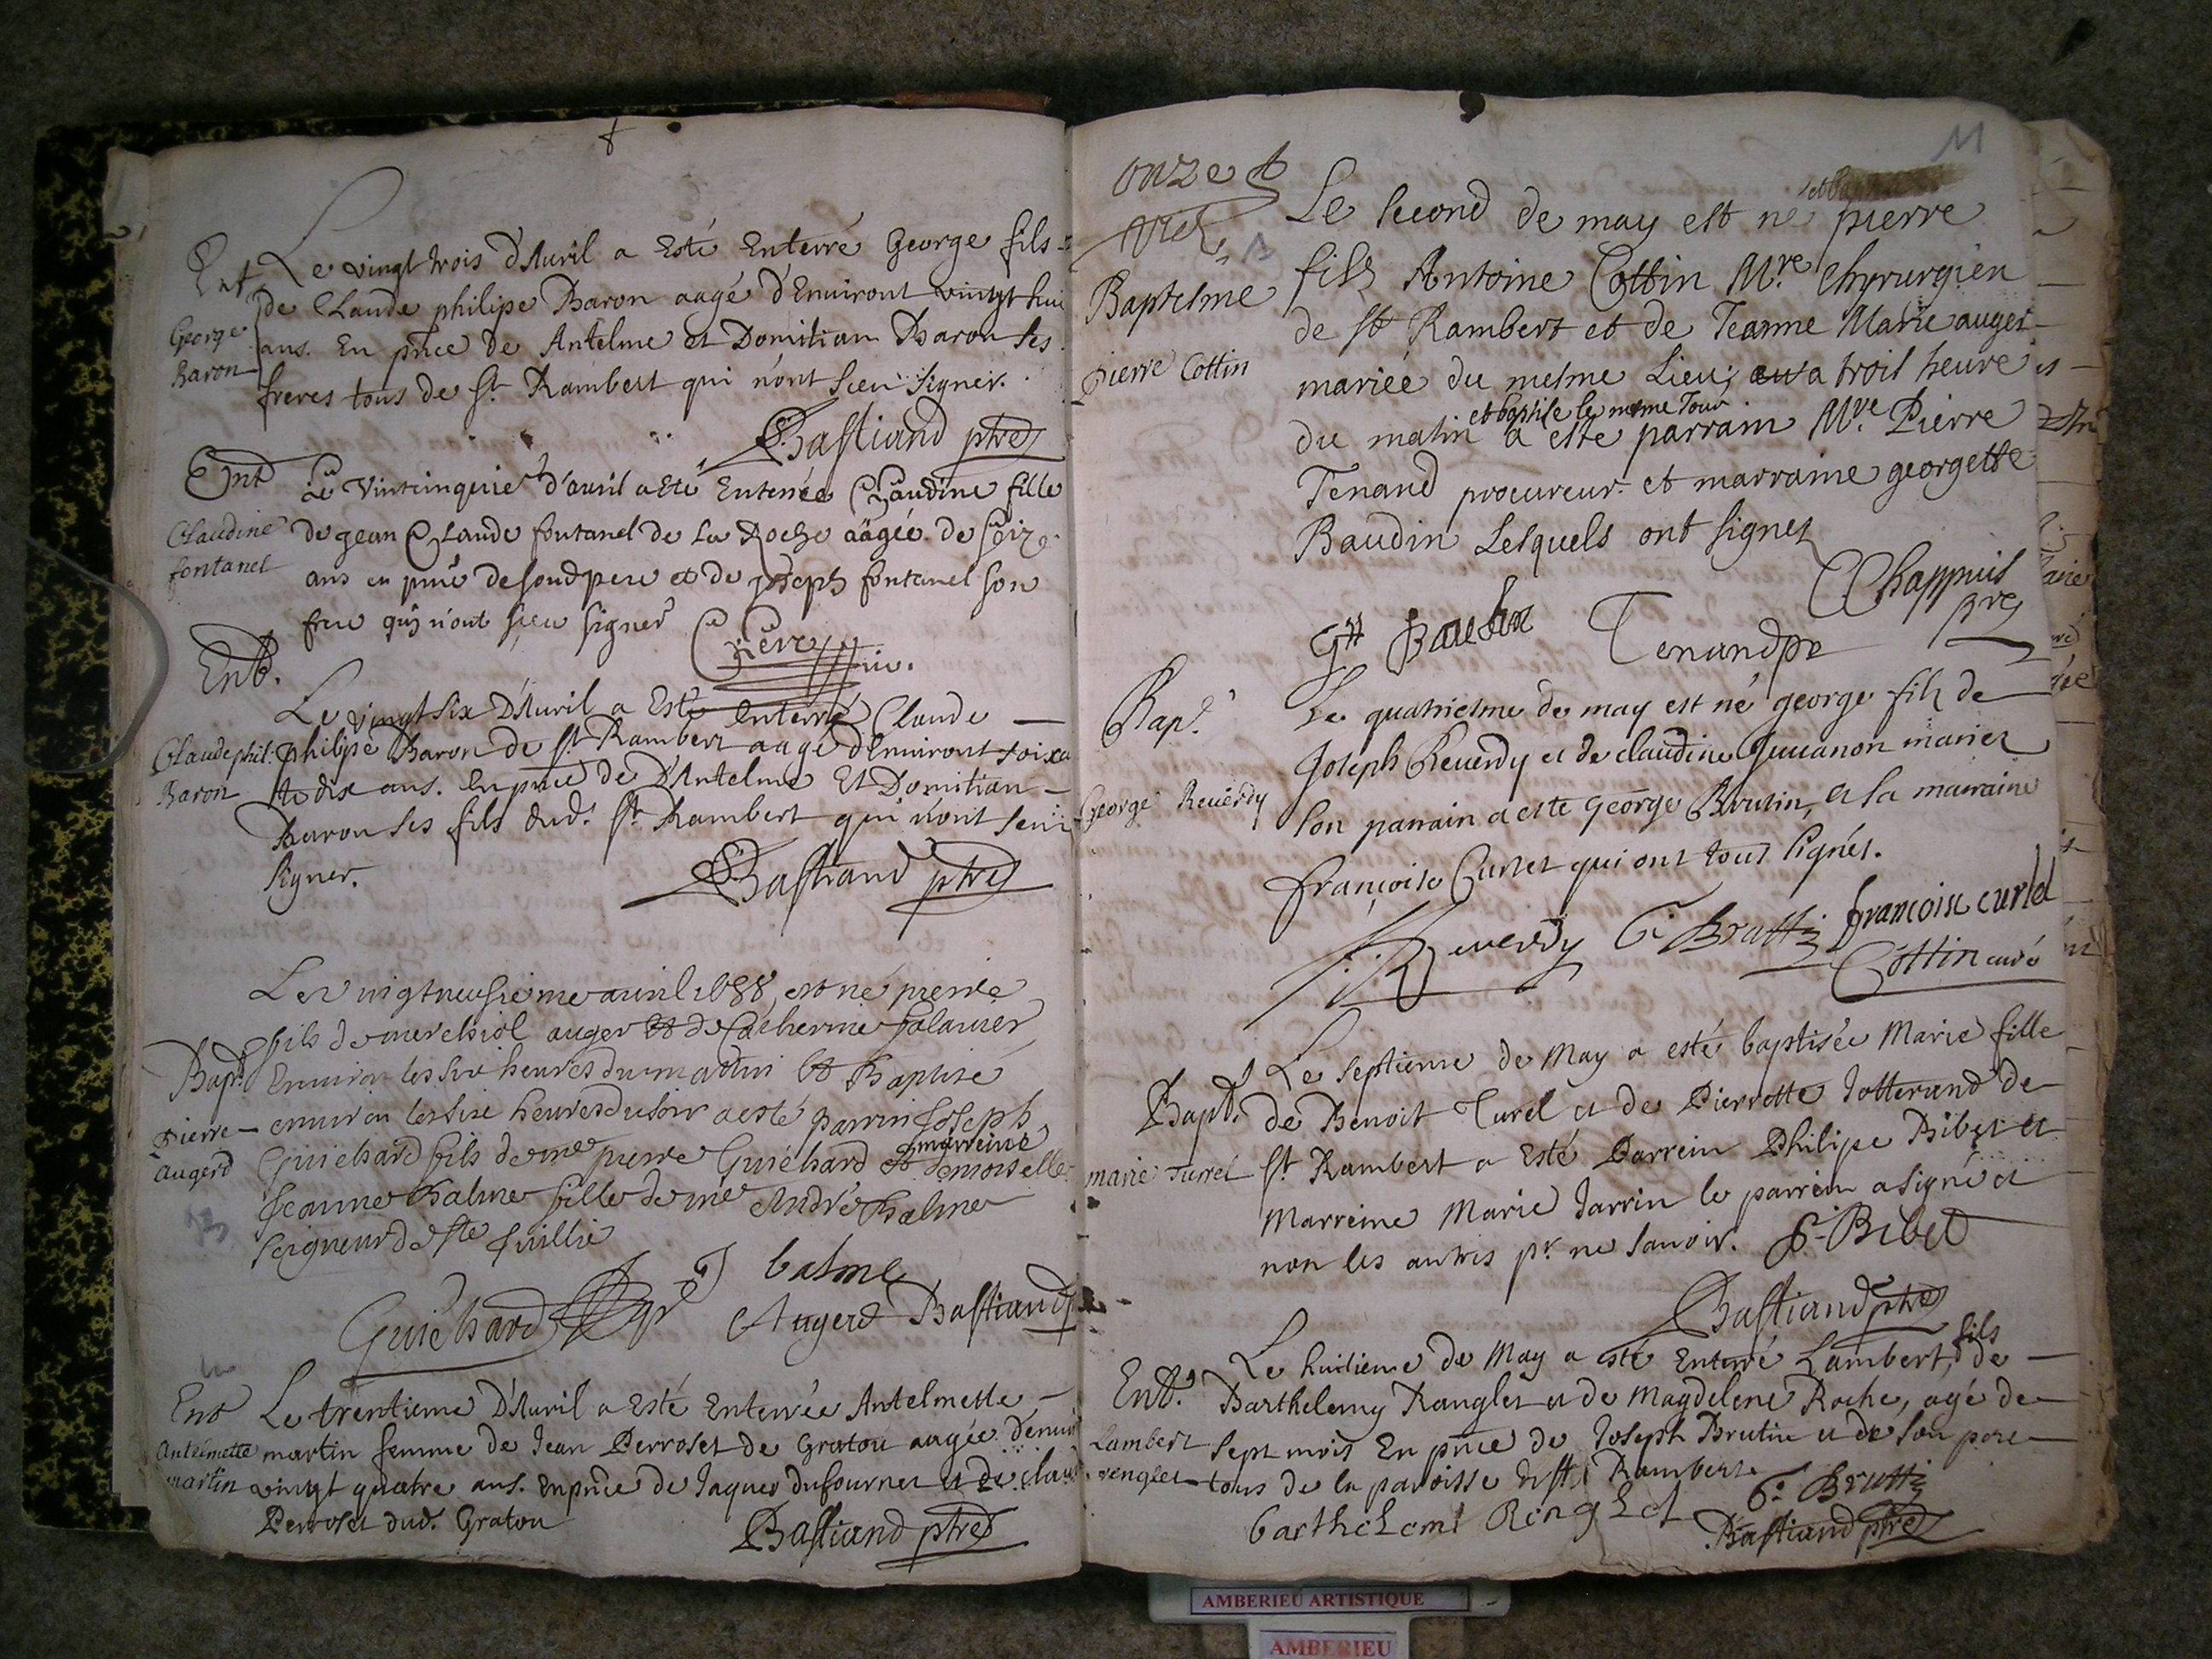 Ent Le vingt trois d'Auril a Esté Enterré George fils
de Claude philipe Baron aagé d'Enuiront vingt hui
George
Baron
ans. En pñce de Antelme et Domitian Baron ses
freres tous de st Rambert qui n'ont sceu signer.
Bastiand ptre
Ent Le d'auril a eté Enterrée Claudine fille
Claudine
fontanel
de gean Claude fontanel de La Roche aâgée de seize
ans en pnce de sond pere et de joseph fontanel son
frere quj n'ont sceu signer
Ent.
Le vingt six D'Auril a Esté enterré Claude
Claude phil.
Baron
philipe Baron de st Rambert aagé d'Enuiront soixa
te dix ans. En pnce de D'Antelme Et Domitian
Baron ses fils dud. st Rambert qui n'ont sceu
signer.
Bastiand ptre
Le vingtneufsieme auril 1688, est né pierre
fils de auger et de Catherine
Bapt. Enuiron les six heures du mattin et Baptisé
Pierre
Augerd
enuiron les six heures du soir a esté parrin Joseph
Guichard fils de me pierre Guichard et marreine demoiselle
Jeanne Balme fille de me André Balme
seigneur de ste Juillie
Guichard J balme
Augerd Bastiand
Ent Le trentieme D'Auril a Esté Enterrée Antelmette
Antelmette
martin
martin femme de Jean Perroset de Gratou aagée denuir
vingt quatre ans. En pnce de Jaques dufournet et de clau
Perroset dud. Gratou
Bastiand ptre
11
onze
Le second de may est né pierre
Baptesme
fils Antoine Cottin Mre Chyrurgien
de st Rambert et de Jeanne Marie auger
Pierre Cottin
mariée du mesme Lieu, a trois heure
du matin et baptisé le mesme Jour a esté parrain Mre Pierre
Tenand procureur et marraine georgette
Baudin Lesquels ont signez
Chappuis
pre
Gtt Baudin Tenand pr
Bapt. Le quatriesme de may est né george filz de
Joseph Reuerdy et de claudine Juuanon mariez
George Reuerdy
son parrain a esté George Brutin, et sa marraine
françoise Curlet qui ont tous signés.
J. Reuerdy G. Bruttin francoise curlet
Cottin curé
Bapt. Le septieme de May a esté baptisée Marie fille
de Benoit Turel et de Pierrette Jotterand de
marie Turrel
st Rambert a Esté Parrein Philipe Bibet et
Marreine Marie Jarrin le parrein a signé et
non les autres pr ne sauoir. P. Bibet
Bastiand ptre
Ent. Le huitieme de May a esté Enterré Lambert, fils de
Barthelemy Ranglet et de Magdelene Roche, agé de
Lambert
renglet
sept mois En pnce de Joseph Brutin et de son pere
tous de la paroisse de st Rambert.
barthelemi Renglet G. Bruttin
Bastiand ptre
AMBERIEU ARTISTIQUE
AMBERIEU